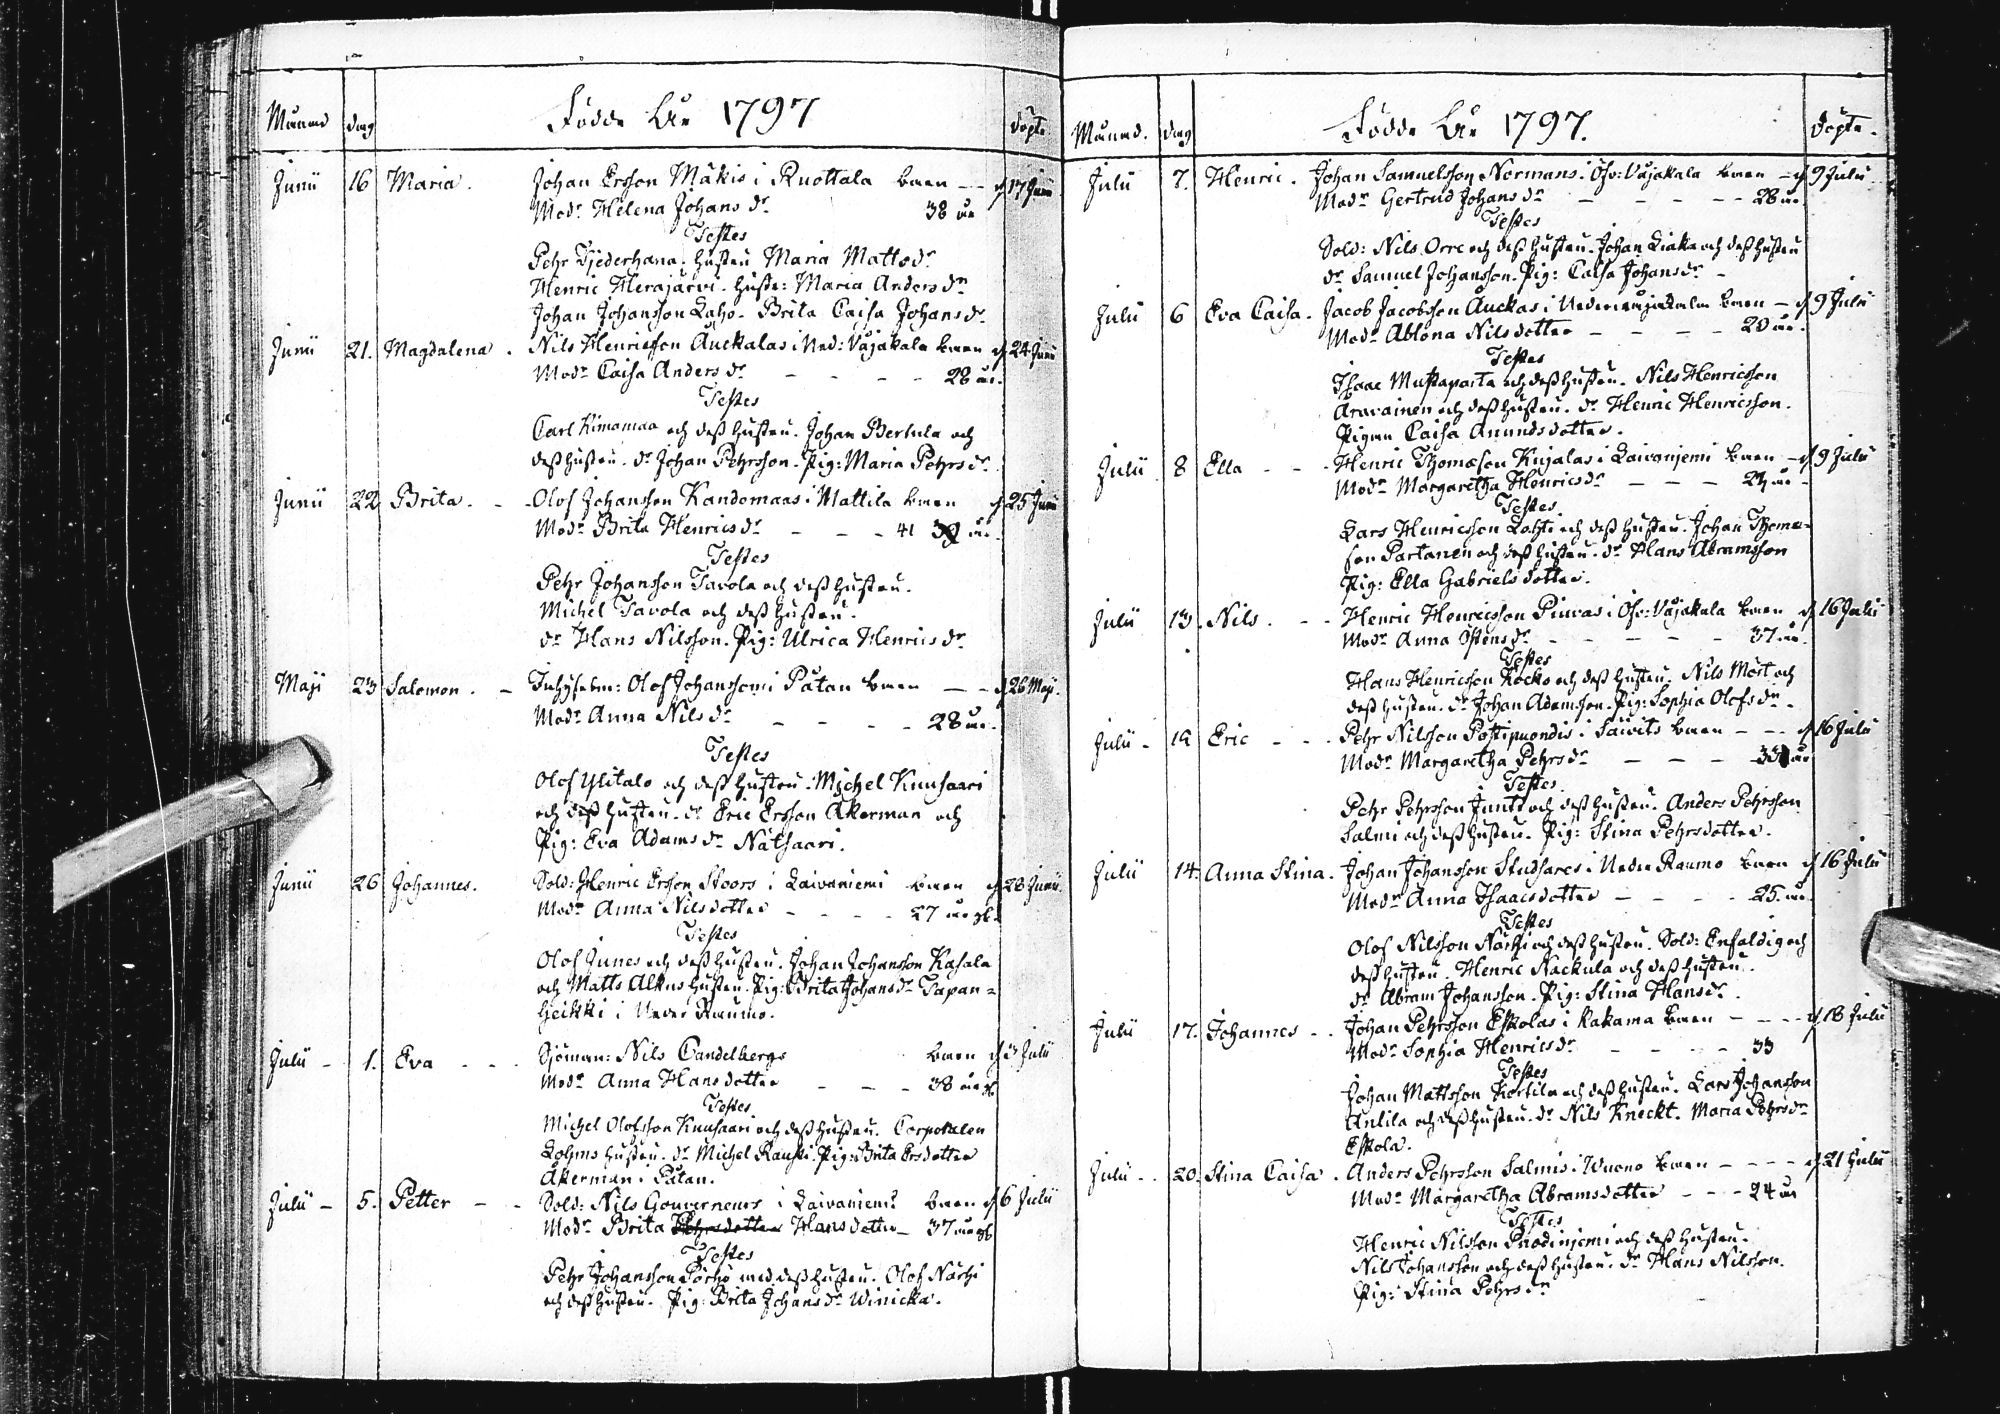 Månad dag Födde År 1797 Döpte
Junii 16 Maria. Johan Ersson Mäkis i Ruottala barn -- d 17 Junii
Modr Helena Johans dr 38 år
Testes
Pehr Tjederhana. hustru Maria Matts dr
Henric Herajärvi. hustr: Maria Anders dr
Johan Johansson Laho. Brita Caisa Johans dr.
Junii 21. Magdalena. Nils Henricsson Auckalas i Ned: Våjakala barn d 24 Junii
Modr Caisa Anders dr - - - - 28 år.
Testes
Carl Kimamaa och dess hustru. Johan Bertula och
dess hustru. dr Johan Pehrsson. Pig: Maria Pehrs dr
Junii 22 Brita. - - Olof Johansson Kandomaas i Mattila barn d 25 Junii
Modr Brita Henrics dr - - - 41 år.
Testes
Pehr Johansson Tavola och dess hustru.
Michel Tavola och dess hustru.
dr Hans Nilsson. Pig: Ulrica Henrics dr
Maji 23 Salomon. - Inhyses m: Olof Johanssons i Påtan barn - - d 26 Maji.
Modr Anna Nils dr - - - - 28 år.
Testes
Olof Ylitalo och dess hustru. Michel Knusaari
och dess hustru. dr Eric Ersson Åkerman och
Pig: Eva Adams dr Nätsaari.
Junii 26 Johannes. Sold: Henric Ersson Stoors i Laivaniemi barn d 28 Junii.
Modr Anna Nilsdotter - - - - 27 år gl.
Testes
Olof Junes och dess hustru. Johan Johansson Kasala
och Matts Alkus hustru. Pig: Brita Johans dr Tapan=
heikki i Neder Raumo.
Julii - 1. Eva - - - Sjöman: Nils Candelbergs barn d 3 Julii
Modr Anna Hansdotter - - - 38 år gl
Testes
Michel Olofsson Knusaari och dess hustru. Corporalen
Bohms hustru. dr Michel Rauski. Pig: Brita Ersdotter
Åkerman i Påtan.
Julii - 5. Petter - - Sold: Nils Gouverneurs i Laivaniemi barn d 6 Julii
Modr Brita Pehrsdotter Hansdotter - 37 år gl
Testes
Pehr Johansson Pörhö med dess hustru. Olof Närhi
och dess hustru. Pig: Brita Johans dr Winicka.
Månad. dag Födde År 1797. Döpte.
Julii 7. Henric. Johan Samuelsson Normans i Öfv: Våjakala barn - d 9 Julii
Modr Gertrud Johans dr - - - - 28 år
Testes
Sold: Nils Orre och dess hustru. Johan Liaka och dess hustru
dr Samuel Johansson. Pig: Caisa Johans dr -
Julii 6 Eva Caisa. Jacob Jacobsson Auckas i Nedervåjakala barn - d 9 Julii
Modr Ablona Nilsdotter - - - - 20 år.
Testes
Isaac Mustaparta och dess hustru. Nils Henricsson
Aravainen och dess hustru. dr Henric Henricsson.
Pigan Caisa Anundsdotter.
Julii 8 Ella - - - Henric Thomæson Kujalas i Laivanjemi barn - d 9 Julii
Modr Margaretha Henrics dr - - - 24 år
Testes
Lars Henricsson Lohti och dess hustru. Johan Thomæ-
son Partanen och dess hustru. dr Hans Abramsson
Pig: Ella Gabrielsdotter.
Julii 13. Nils. - - Henric Henricsson Pinras i Öfv: Våjakala barn d 16 Julii
Modr Anna Östens dr - - - - 37 år.
Testes
Hans Henricsson Kocko och dess hustru. Nils Mört och
dess hustru. dr Johan Adamsson. Pig: Sophia Olofs dr -
Julii - 12 Eric - - - Pehr Nilsson Postipuondis i Säivits barn - - - d 16 Julii
Modr Margaretha Pehrs dr - - - år
Testes.
Pehr Pehrsson Juntti och dess hustru. Anders Pehrsson
Salmi och dess hustru. Pig: Stina Pehrsdotter.
Julii 14. Anna Stina. Johan Johansson Studsares i Neder Raumo barn d 16 Julii
Modr Anna Isaacsdotter - - - - 25. år.
Testes
Olof Nilsson Närhi och dess hustru. Sold: Enfaldig och
dess hustru. Henric Nackula och dess hustru.
dr Abram Johansson. Pig: Stina Hans dr.
Julii 17. Johannes - - Johan Pehrsson Eskolas i Kakama barn - - - - d 18 Julii
Modr Sophia Henrics dr - - - - 33
Testes
Johan Mattsson Kortila och dess hustru. Lars Johansson
Anlila och dess hustru. dr Nils Kneckt. Maria Pehrs dr
Eskola.
Julii - - 20. Stina Caisa. Anders Pehrsson Salmis i Wuono barn - - - - d 21 Julii
Modr Margaretha Abramsdotter - - - 24 år
Testes
Henric Nilsson Prodinjemi och dess hustru.
Nils Johansson och dess hustru. dr Hans Nilsson.
Pig: Stina Pehrs dr